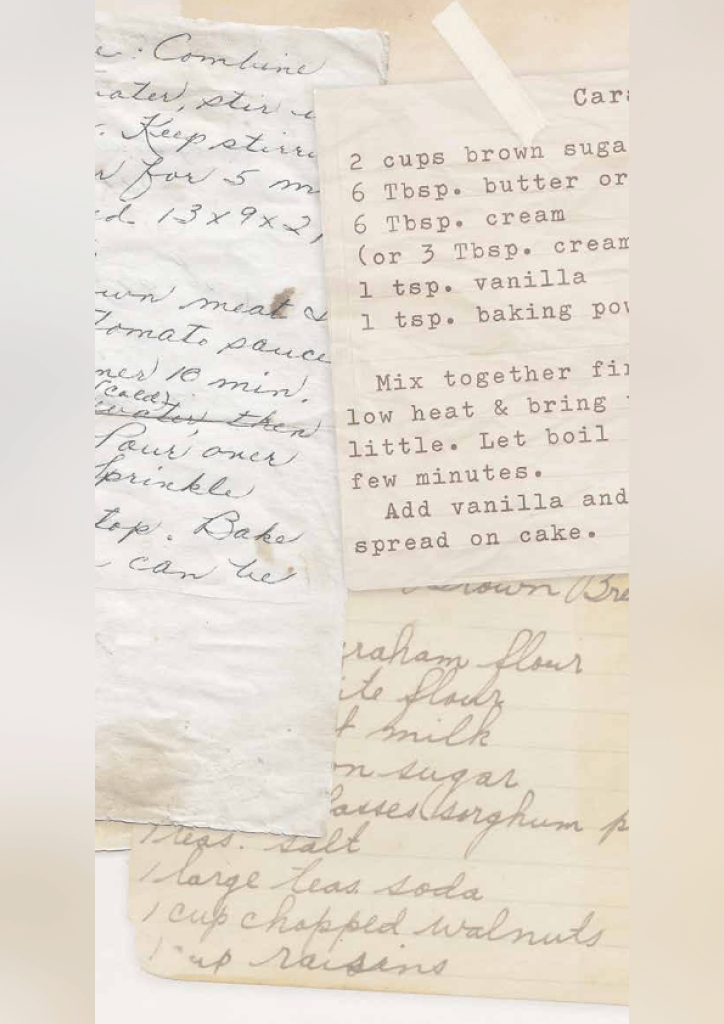 : Combine
ater, stir
. Keep stirri
for 5 m
13x9x2,
wn meat &
tomato sauce
mer 10 min.
(cold)
water, then
Pour over
Sprinkle
top. Bake
can be
Cara
2 cups brown suga
6 Tbsp. butter or
6 Tbsp. cream
(or 3 Tbsp. cream
1 tsp. vanilla
1 tsp. baking pow
Mix together fir
low heat & bring
little. Let boil
few minutes.
Add vanilla and
spread on cake.
Brown Bre
raham flour
ite flour
t milk
on sugar
lasses sorghum p
1 teas. salt
1 large teas. soda
1 cup chopped walnuts
1 cup raisins